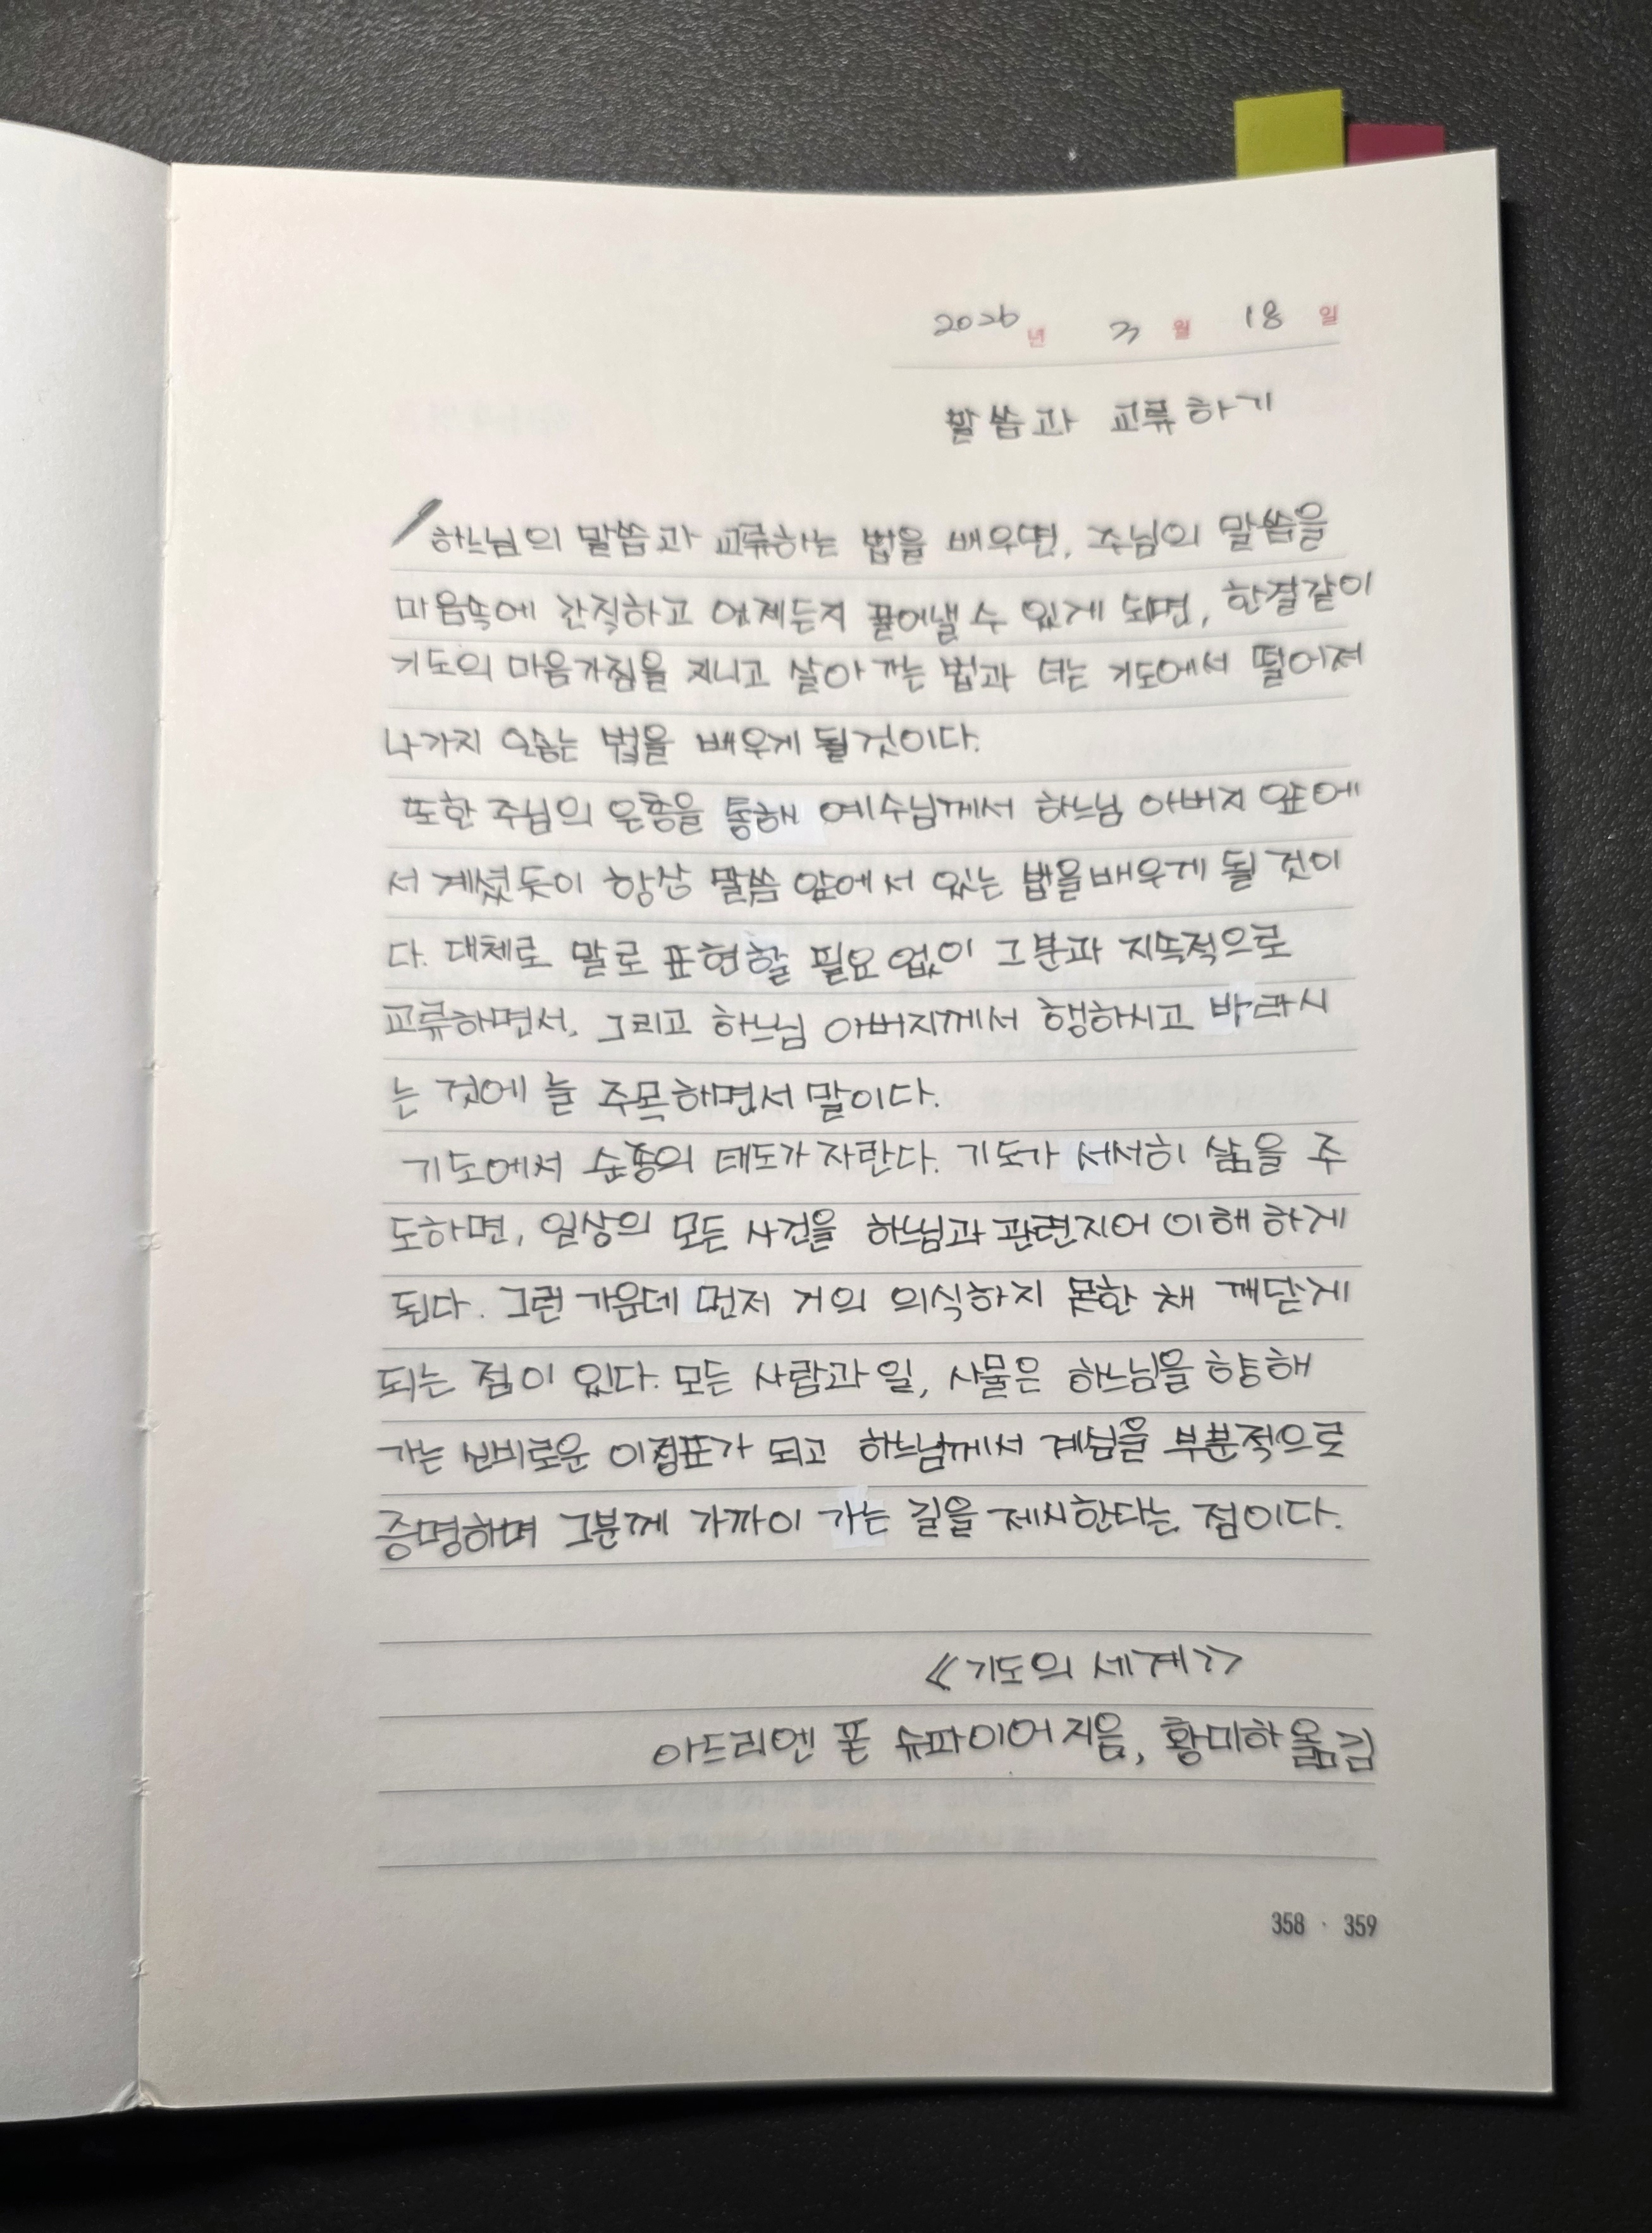 2026년 3월 18일
말씀과 교류하기
하느님의 말씀과 교류하는 법을 배우면, 주님의 말씀을
마음속에 간직하고 언제든지 끌어낼 수 있게 되면, 한결같이
기도의 마음가짐을 지니고 살아 가는 법과 더는 기도에서 떨어져
나가지 않는 법을 배우게 될것이다.
또한 주님의 은총을 통해 예수님께서 하느님 아버지 앞에
서 계셨듯이 항상 말씀 앞에 서 있는 법을 배우게 될 것이
다. 대체로 말로 표현할 필요 없이 그분과 지속적으로
교류하면서, 그리고 하느님 아버지께서 행하시고 바라시
는 것에 늘 주목해면서 말이다.
기도에서 순종의 태도가 자란다. 기도가 서서히 삶을 주
도하면, 일상의 모든 사건을 하느님과 관련지어 이해 하게
된다. 그런 가운데 먼저 거의 의식하지 못한 채 깨닫게
되는 점이 있다. 모든 사람과 일, 사물은 하느님을 향해
가는 신비로운 이정표가 되고 하느님께서 계심을 부분적으로
증명하며 그분께 가까이 가는 길을 제시한다는 점이다.
《기도의 세계》
아드리엔 폰 슈파이어 지음, 황미하 옮김
358 · 359